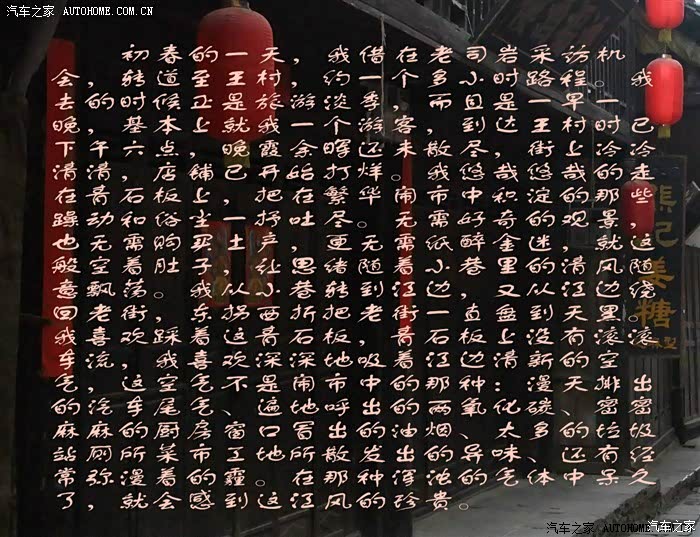 汽车之家 AUTOHOME.COM.CN
初春的一天，我借在老司岩采访机
会，转道至王村，约一个多小时路程。我
去的时候正是旅游淡季，而且是一早一
晚，基本上就我一个游客，到达王村时已
下午六点，晚霞余晖还未散尽，街上冷冷
清清，店铺已开始打烊。我悠哉悠哉的走
在青石板上，把在繁华闹市中积淀的那些
躁动和俗尘一抒吐尽。无需好奇的观景，
也无需购买土产，更无需纸醉金迷，就这
般空着肚子，让思绪随着小巷里的清风随
意飘荡。我从小巷转到江边，又从江边绕
回老街，东拐西折把老街一直盘到天黑。
我喜欢踩着这青石板，青石板上没有滚滚
车流，我喜欢深深地吸着江边清新的空
气，这空气不是闹市中的那种：漫天排出
的汽车尾气、遍地呼出的两氧化碳、密密
麻麻的厨房窗口冒出的油烟、太多的垃圾
站厕所菜市工地所散发出的异味、还有经
常弥漫着的霾。在那种浑浊的气体中呆久
了，就会感到这江风的珍贵。
姜糖
汽车之家 AUTOHOME.COM.CN
汽车之家